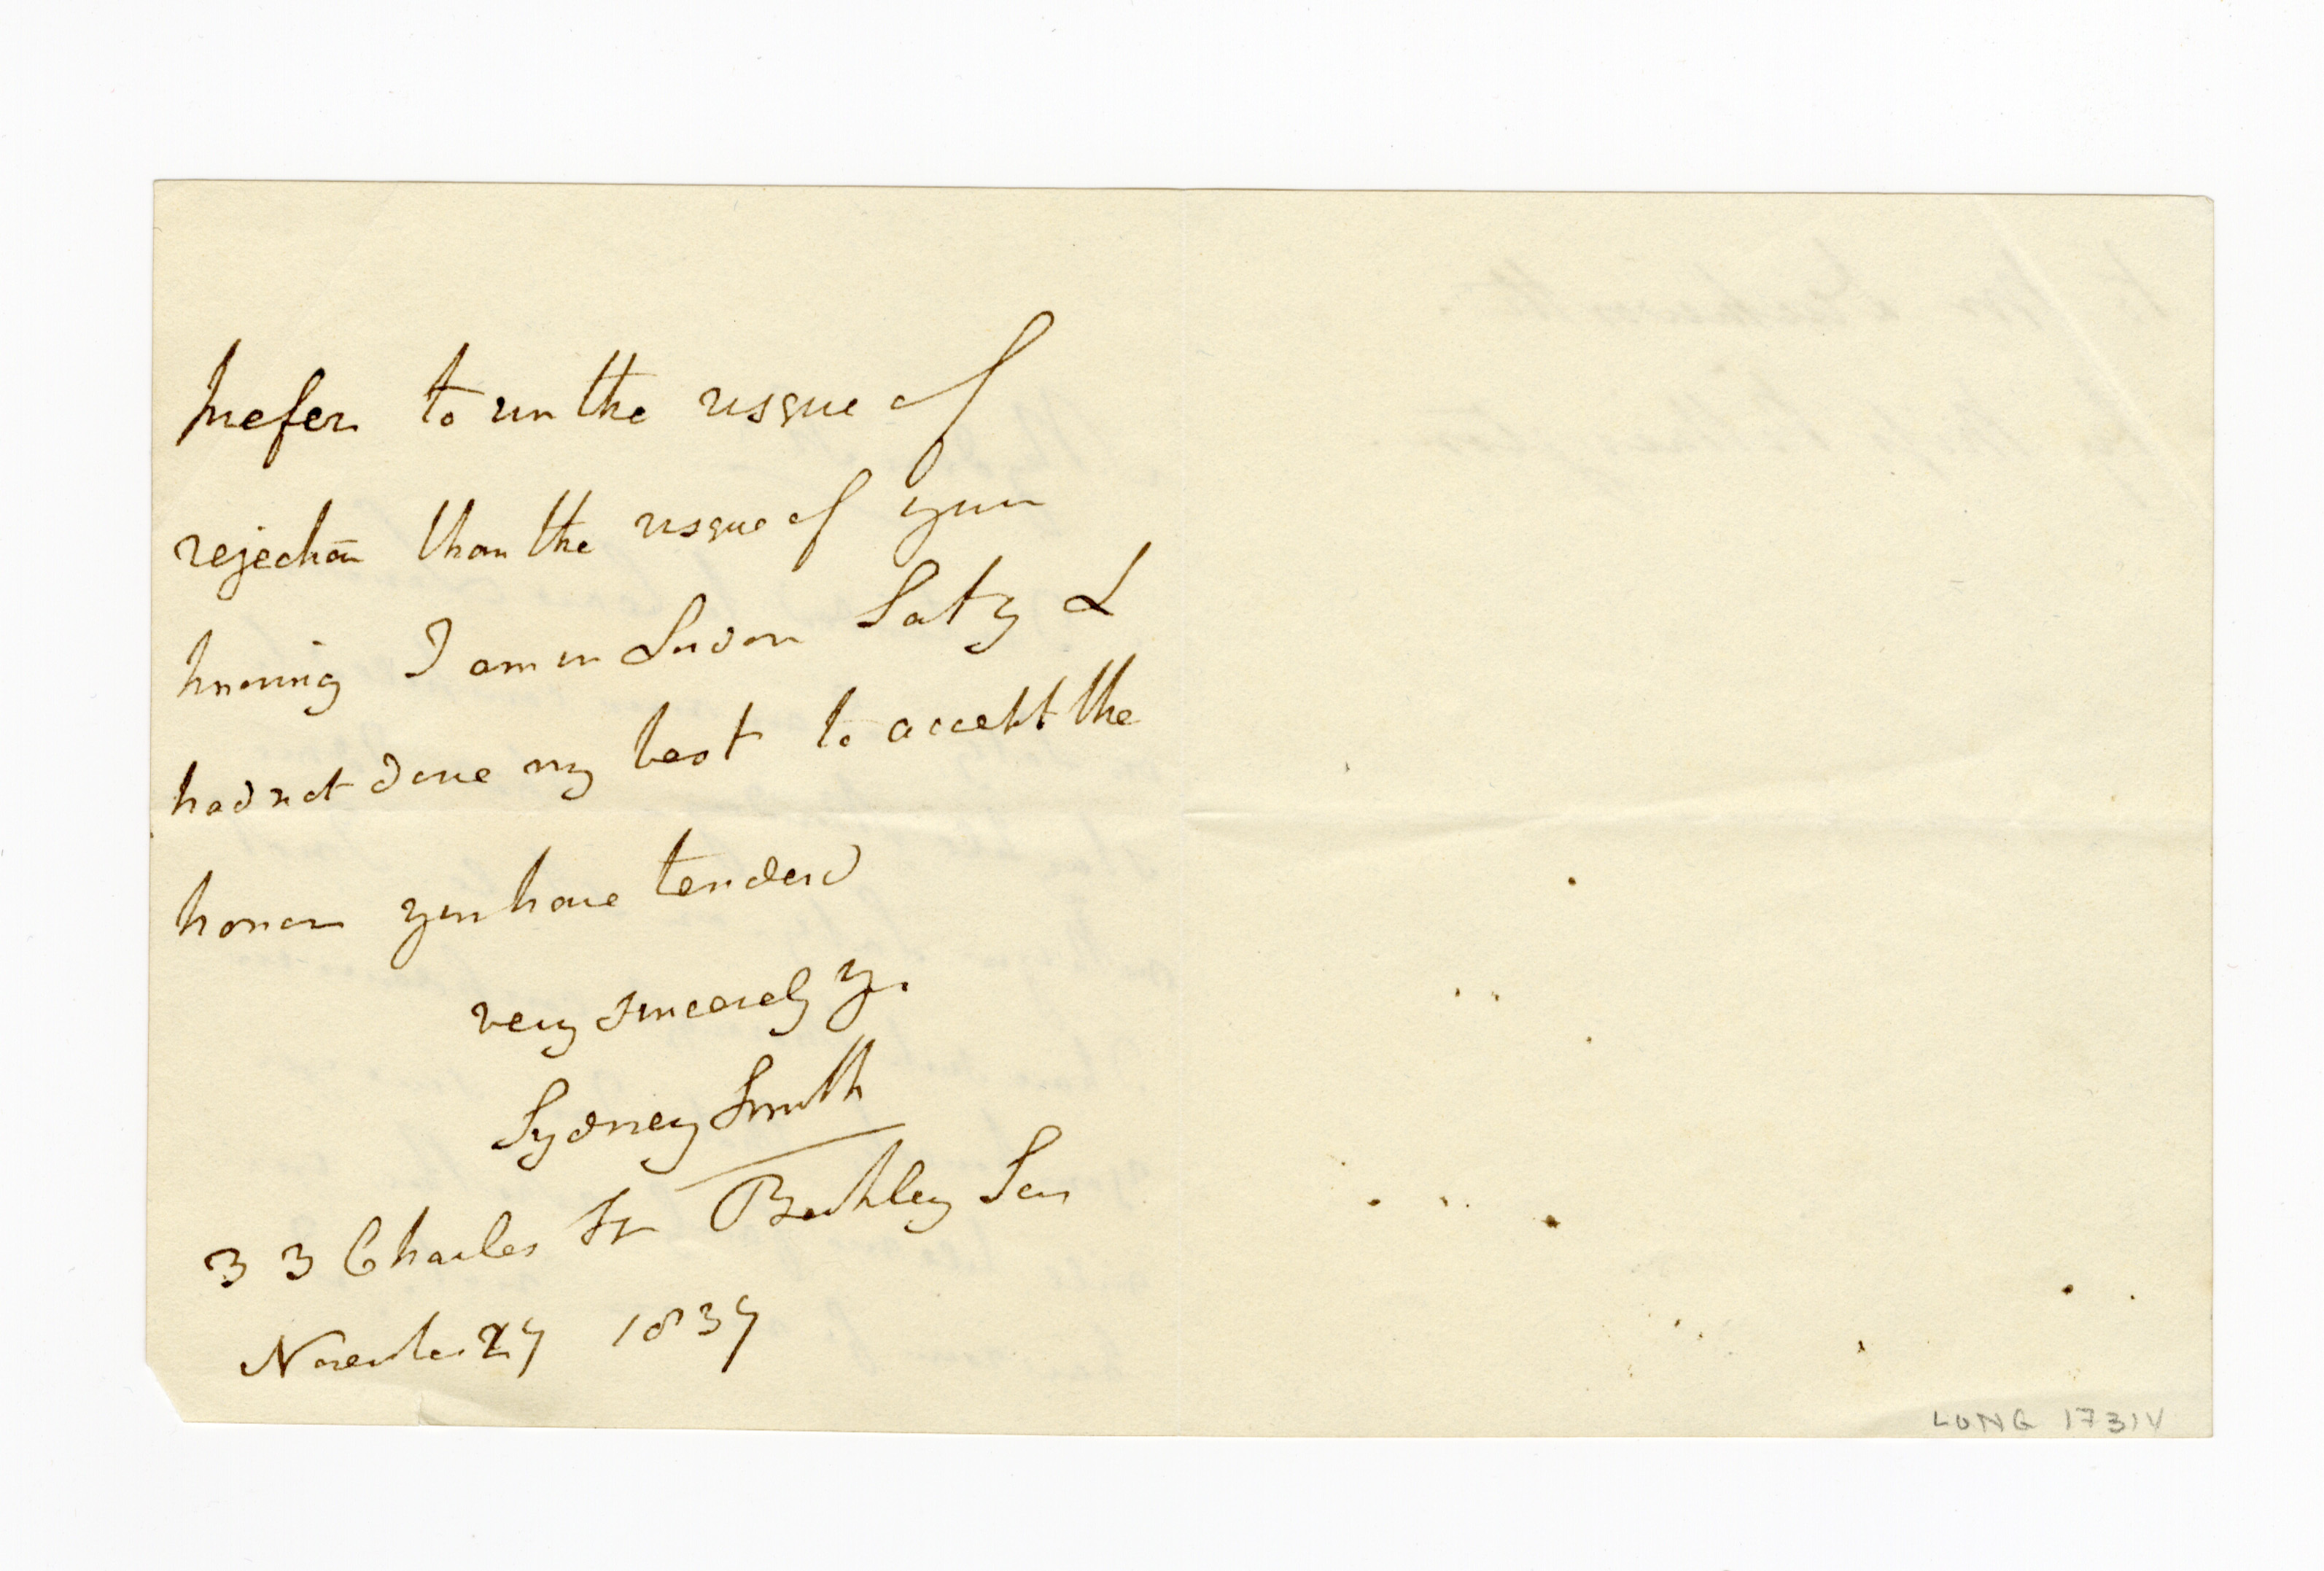 prefer to run the risque of
rejection than the risque of your
knowing I am in London Saty &
had not done my best to accept the
honor you have tenderd
very sincerely yr.
Sydney Smith
33 Charles St Berkley Squ
November 27 1837
LONG 17314